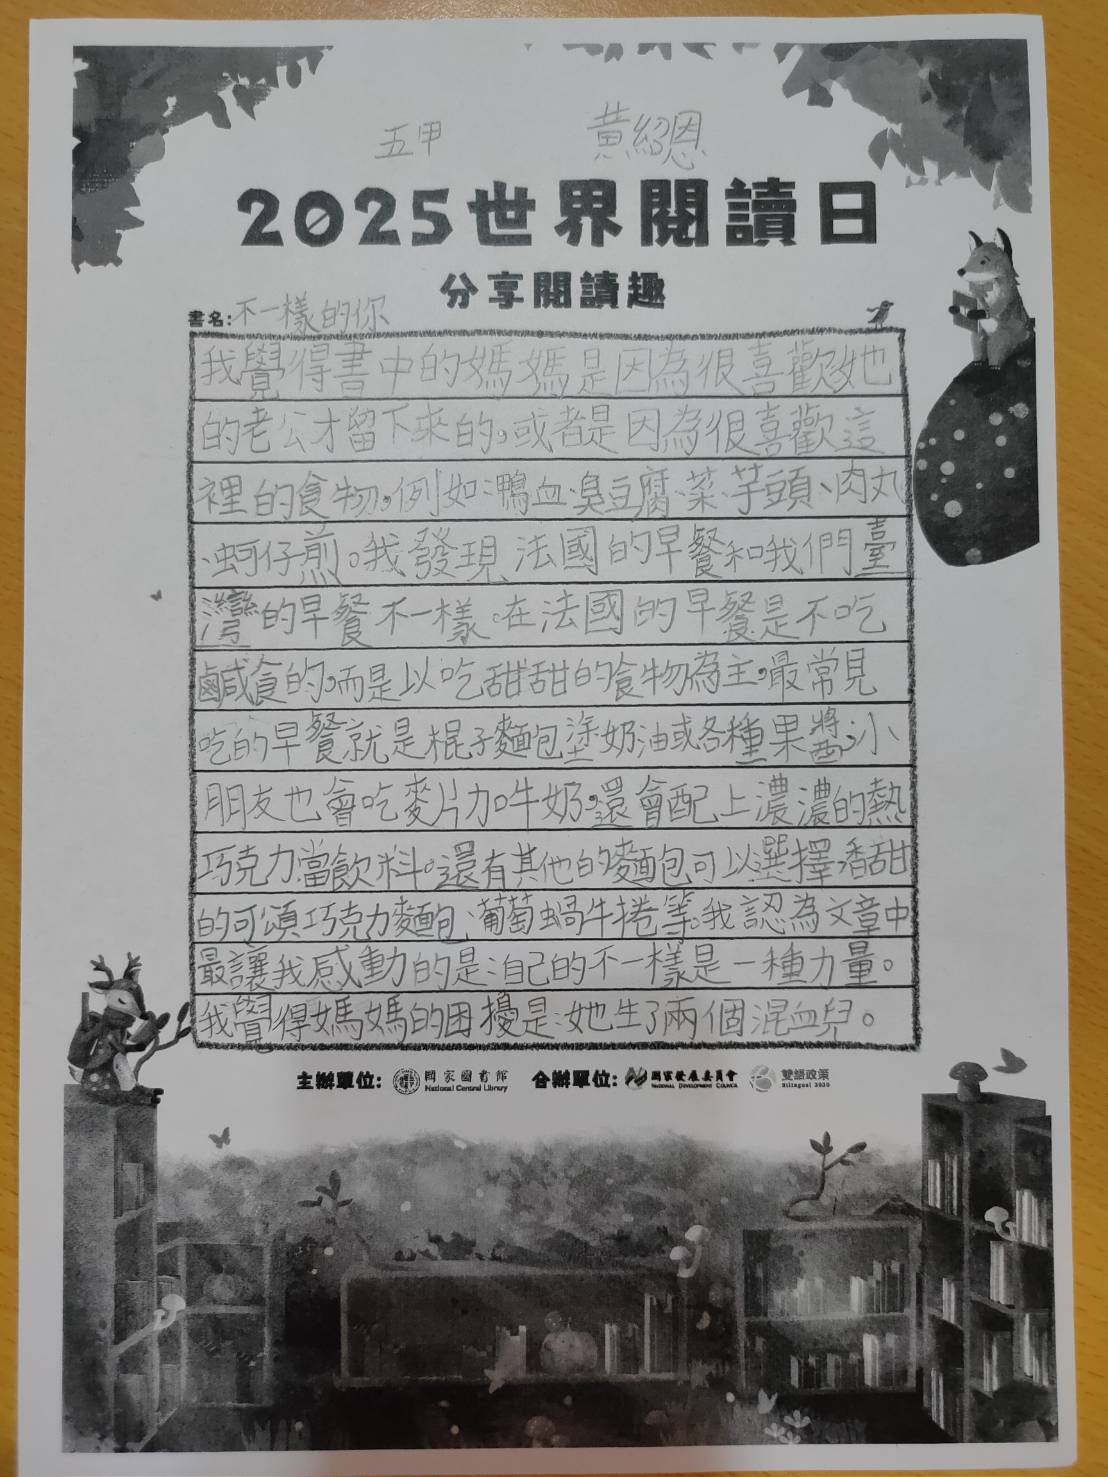 五甲 黃紹恩
2025世界閱讀日
分享閱讀趣
書名:不一樣的你
我覺得書中的媽媽是因為很喜歡她
的老公才留下來的,或者是因為很喜歡這
裡的食物,例如:鴨血、臭豆腐、菜、芋頭、肉丸
、蚵仔煎。我發現法國的早餐和我們臺
灣的早餐不一樣。在法國的早餐是不吃
鹹食的,而是以吃甜甜的食物為主,最常見
吃的早餐就是棍子麵包塗奶油或各種果醬,小
朋友也會吃麥片加牛奶,還會配上濃濃的熱
巧克力當飲料。還有其他的麵包可以選擇,香甜
的可頌、巧克力麵包、葡萄蝸牛捲等。我認為文章中
最讓我感動的是:自己的不一樣是一種力量。
我覺得媽媽的困擾是:她生了兩個混血兒。
主辦單位: 國家圖書館 National Central Library 合辦單位: 國家發展委員會 National Development Council 雙語政策 Bilingual 2030